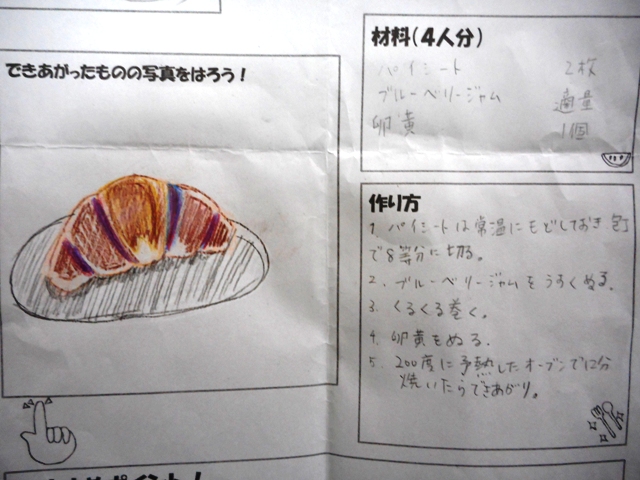 できあがったものの写真をはろう!
材料(4人分)
パイシート 2枚
ブルーベリージャム 適量
卵黄 1個
作り方
1. パイシートは常温にもどしておき包丁
で8等分に切る。
2. ブルーベリージャムをうすくぬる。
3. くるくる巻く。
4. 卵黄をぬる.
5. 200度に予熱したオーブンで12分
焼いたらできあがり。
ポイント!